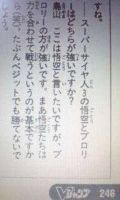 すね。
ースーパーサイヤ人3の悟空とブロリ
ーはどちらが強いですか?
鳥山 ここは悟空と言いたいですが、ブ
ロリーの方が強いです。まあ悟空たちは
力を合わせて戦うというのが基本ですか
ら(笑)。たぶんベジットでも勝てないで
Vジャンプ 246